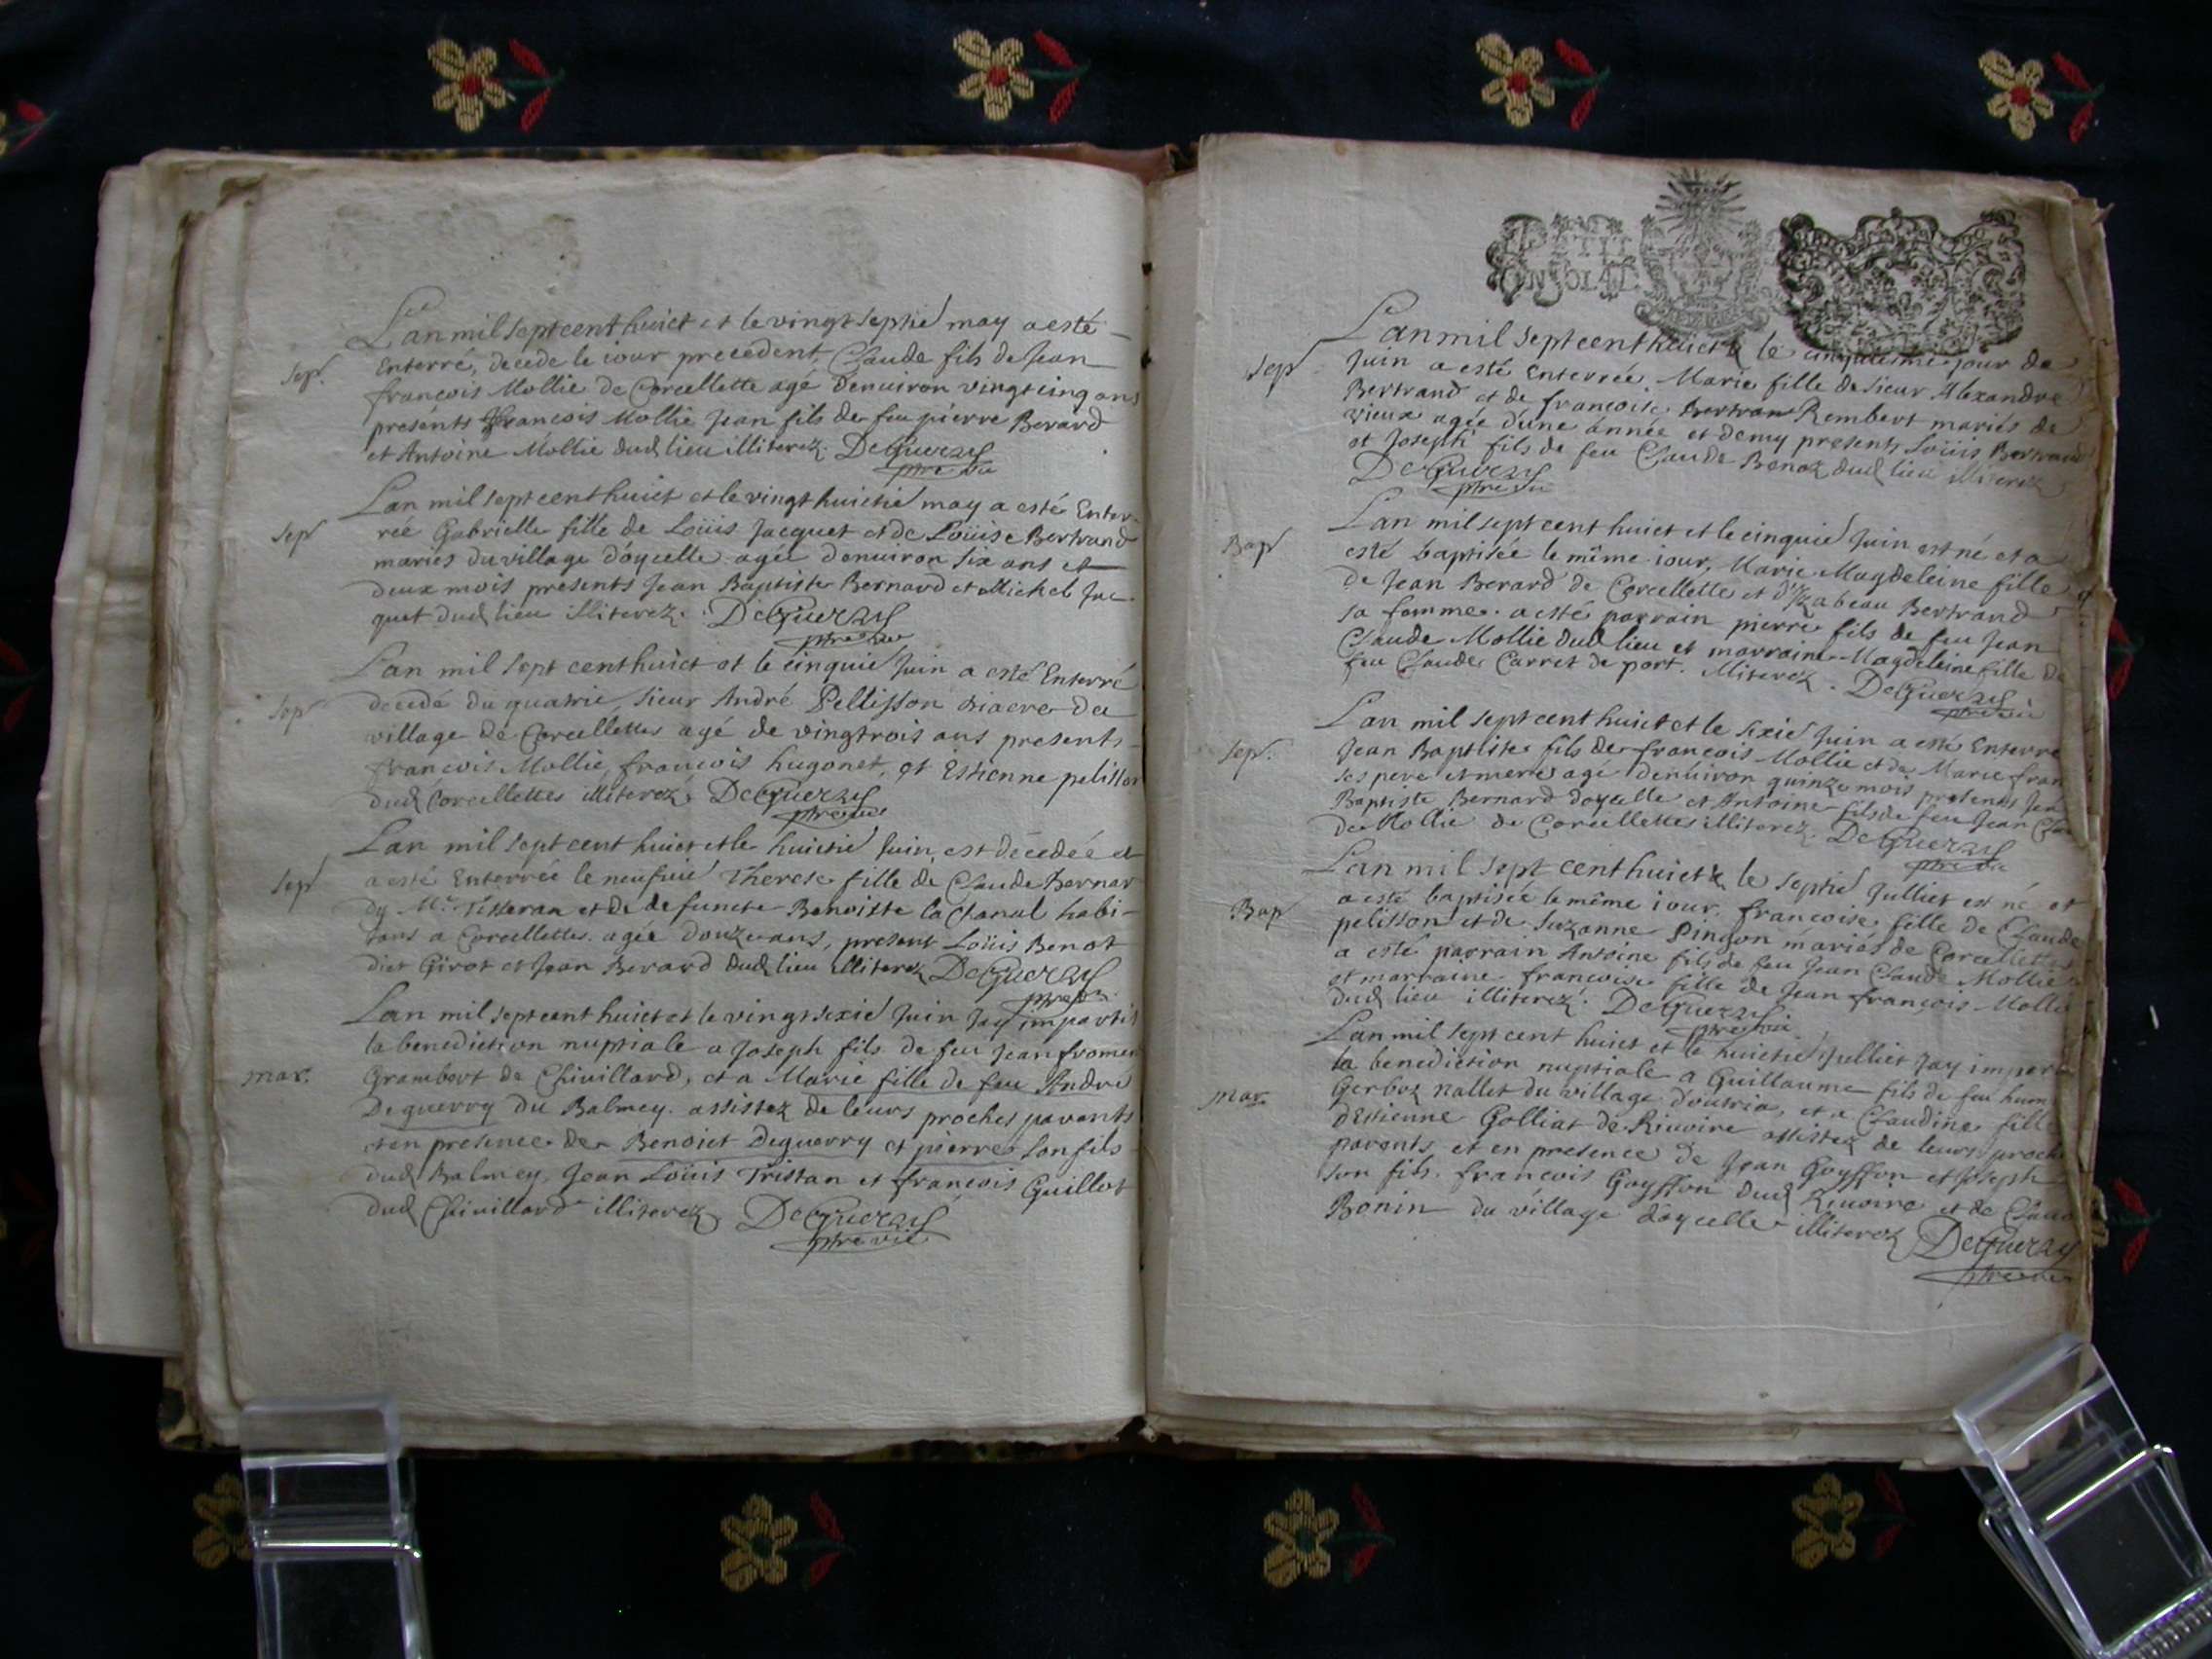 Lan mil sept cent huict et le vingt septie may a esté
Sep.
Enterré, decede le iour precedent, Claude fils de Jean
francois Mollie de Corcellette agé denuiron vingt cinq ans
presents francois Mollie Jean fils de feu pierre Berard
et Antoine Mollie dud lieu illiterez. DeGuerry
ptre vic
Lan mil sept cent huict et le vingt huictie may a esté Enter
Sep
rée Gabrielle fille de Loüis Jacquet et de Loüise Bertrand
mariés du village doycelle agée denuiron six ans et
deux mois presents Jean Baptiste Bernard et Michel Jac
quet dud lieu illiterez. DeGuerry
ptre vic
Lan mil sept cent huict et le cinquie Juin a esté Enterré
Sep
decedé du quatrie, sieur André Pellisson diacre du
village de Corcellettes agé de vingtrois ans presents
francois Mollie, francois hugonet, et Estienne pelisson
dud Corcellettes illiterez. DeGuerry
ptre vic
Lan mil sept cent huict et le huictie Juin, est décedée et
Sep
a esté Enterrée le neufuie Therese fille de Claude Bernar
dy Mr Tisseran et de defuncte Benoiste la Chanal habi-
tans a Corcellettes. agée douze ans, present Loüis Benot
diet Girot et Jean Berard dud lieu illiterez DeGuerry
ptre vic
Lan mil sept cent huict et le vingt sixie Juin Jay imparti
la benediction nuptiale a Joseph fils de feu Jean fromen
mar.
Grambert de Chiuillard, et a Marie fille de feu André
Deguerry du Balmey. assistez de leurs proches parents
et en presence de Benoict Deguerry et pierre son fils
dud Balmey, Jean Loüis Tristan et francois Guillot
dud Chiuillard illiterez DeGuerry
ptre vic
Lan mil sept cent huict & le cinquieme jour de
Sep
Juin a esté Enterrée, Marie fille de sieur Alexandre
Bertrand et de francoise Rembert mariés de
vieux agée d'une année et demy presents Loüis Bertrand
et Joseph fils de feu Claude Benoz dud lieu illiterez
DeGuerry
ptre vic
Lan mil sept cent huict et le cinquie Juin est né et a
Bap
esté baptisée le même iour, Marie Magdeleine fille
de Jean Berard de Corcellette et d'Yzabeau Bertrand
sa femme. a esté parrain pierre fils de feu Jean
Claude Mollie dud lieu et marraine Magdeleine fille de
feu Claude Carret de port. illiterez. DeGuerry
ptre vic
Lan mil sept cent huict et le sixie Juin a esté Enterré
Sep.
Jean Baptiste fils de francois Mollie et de Marie fran
ses pere et mere agé denuiron quinze mois presents Jean
Baptiste Bernard doycelle et Antoine fils de feu Jean Clau
de Mollie de Corcellettes illiterez. DeGuerry
ptre vic
Lan mil sept cent huict & le septie Julliet est né et
Bap
a esté baptisée le même iour, francoise fille de Claude
pelisson et de Suzanne Pingon mariés de Corcellettes
a esté parrain Antoine fils de feu Jean Claude Mollie
et marraine francoise fille de Jean francois Mollie
dud lieu illiterez. DeGuerry
ptre vic
Lan mil sept cent huict et le huictie Julliet Jay imparti
la benediction nuptiale a Guillaume fils de feu hum
mar.
Gerboz nallet du village d'outria, et a Claudine fille
d'Estienne Golliat de Riuoire assistez de leurs proch
parents et en presence de Jean Goyffon et Joseph
son fils. francois Goyffon dud Riuoire et de Claud
Bonin du village doycelle illiterez DeGuerry
ptre vic